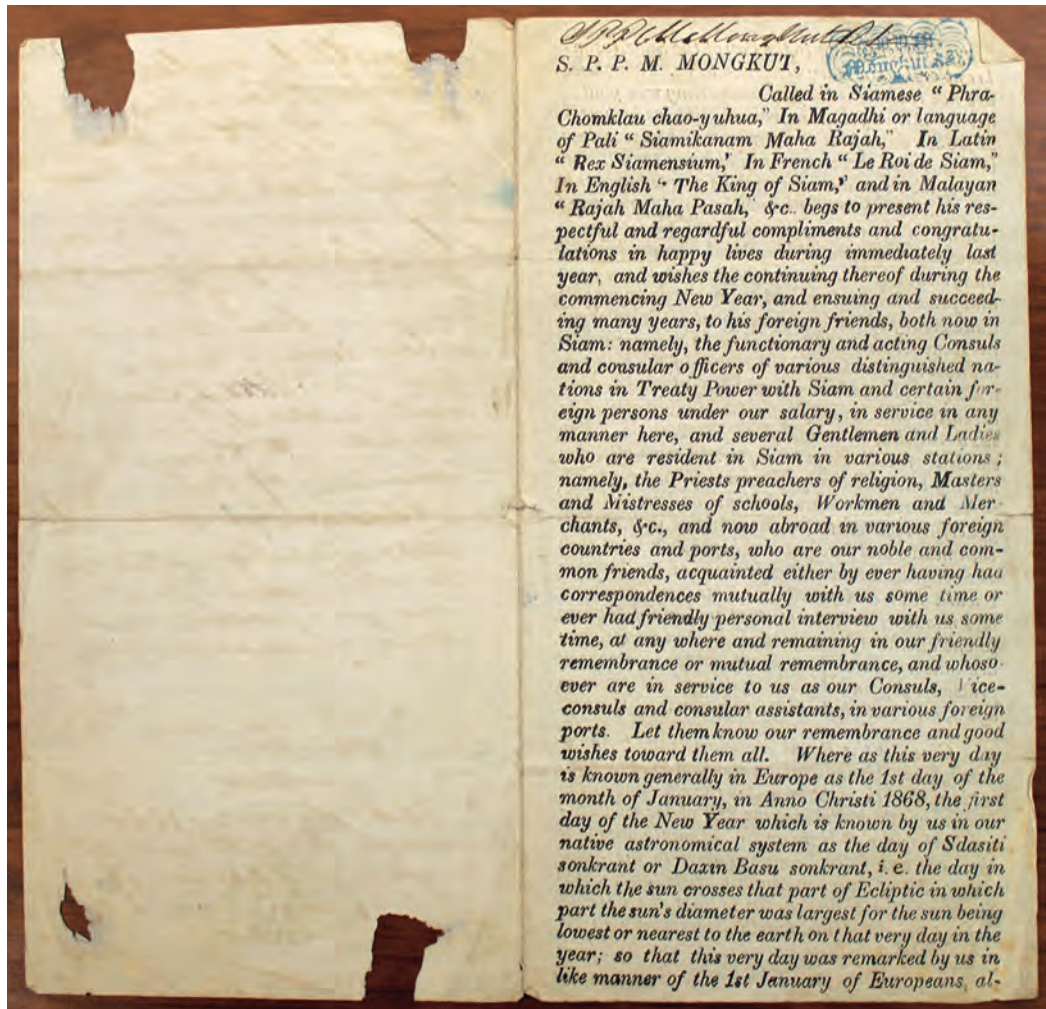 S. P. P. M. MONGKUT,
Called in Siamese " Phra-
Chomklau chao-yuhua," In Magadhi or language
of Pali " Siamikanam Maha Rajah," In Latin
" Rex Siamensium,' In French " Le Roi de Siam,"
In English " The King of Siam,' and in Malayan
" Rajah Maha Pasah, &c.. begs to present his res-
pectful and regardful compliments and congratu-
lations in happy lives during immediately last
year, and wishes the continuing thereof during the
commencing New Year, and ensuing and succeed-
ing many years, to his foreign friends, both now in
Siam: namely, the functionary and acting Consuls
and consular officers of various distinguished na-
tions in Treaty Power with Siam and certain for-
eign persons under our salary, in service in any
manner here, and several Gentlemen and Ladies
who are resident in Siam in various stations ;
namely, the Priests preachers of religion, Masters
and Mistresses of schools, Workmen and Mer-
chants, &c., and now abroad in various foreign
countries and ports, who are our noble and com-
mon friends, acquainted either by ever having had
correspondences mutually with us some time or
ever had friendly personal interview with us some
time, at any where and remaining in our friendly
remembrance or mutual remembrance, and whoso-
ever are in service to us as our Consuls, Vice-
consuls and consular assistants, in various foreign
ports. Let them know our remembrance and good
wishes toward them all. Where as this very day
is known generally in Europe as the 1st day of the
month of January, in Anno Christi 1868, the first
day of the New Year which is known by us in our
native astronomical system as the day of Sdasiti
sonkrant or Daxin Basu sonkrant, i. e. the day in
which the sun crosses that part of Ecliptic in which
part the sun's diameter was largest for the sun being
lowest or nearest to the earth on that very day in the
year; so that this very day was remarked by us in
like manner of the 1st January of Europeans, al-